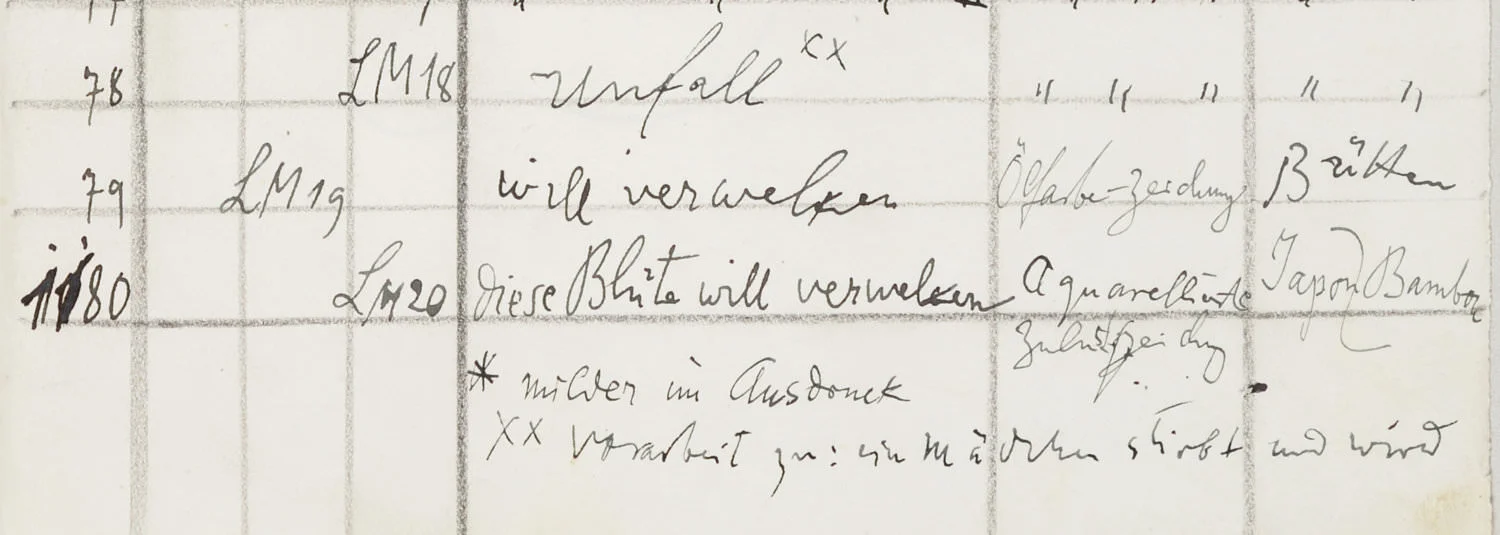 78 LM 18 Unfall xx " " " " "
79 LM 19 will verwelken Ölfarbe-Zeichnung Bütten
1180 LM 20 diese Blüte will verwelken Aquarellierte Japon Bambou
* milder im Ausdruck
xx Vorarbeit zu: ein Mädchen stirbt und wird